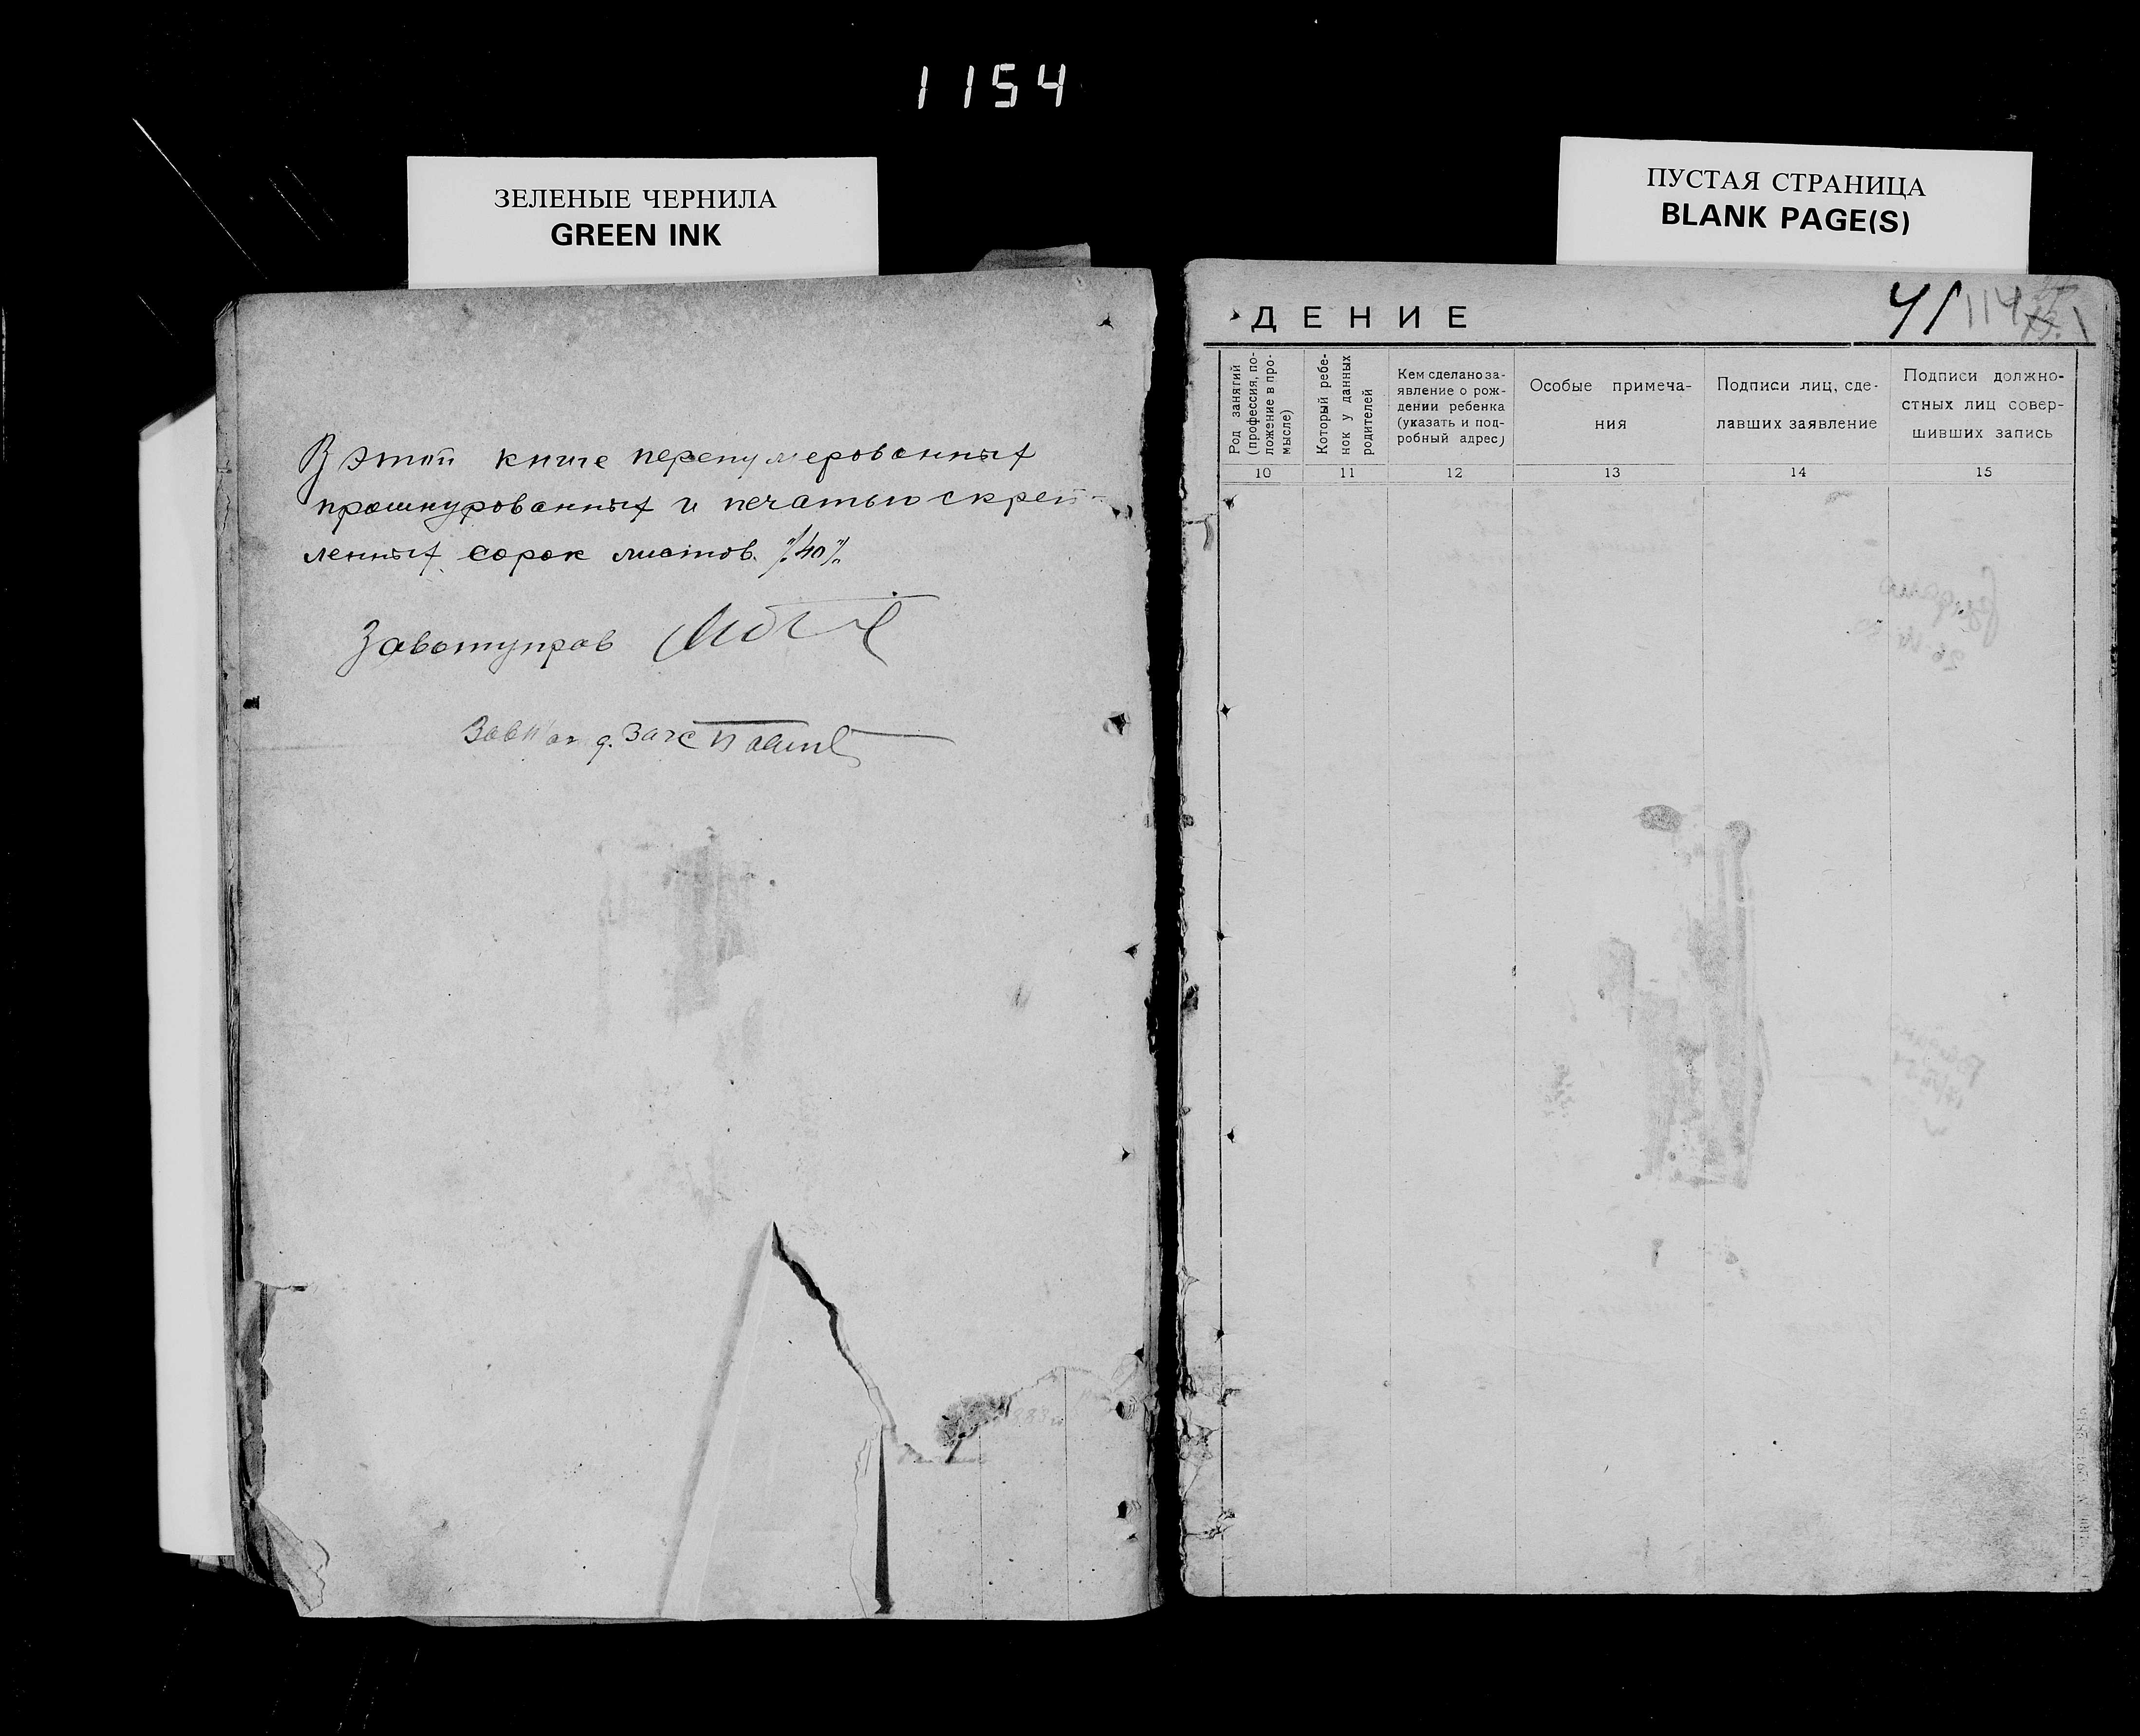 1154
ЗЕЛЕНЫЕ ЧЕРНИЛА
GREEN INK
ПУСТАЯ СТРАНИЦА
BLANK PAGE(S)
В этой книге перенумерованных
прошнурованных и печатью скреп-
ленных сорок листов. /40/.
Завотупров
ДЕНИЕ
41 114
Род занятий
(профессия, по-
ложение в про-
мысле)
Который ребе-
нок у данных
родителей
Кем сделано за-
явление о рож-
дении ребенка
(указать и под-
робный адрес)
Особые примеча-
ния
Подписи лиц, сде-
лавших заявление
Подписи должно-
стных лиц совер-
шивших запись
10 11 12 13 14 15